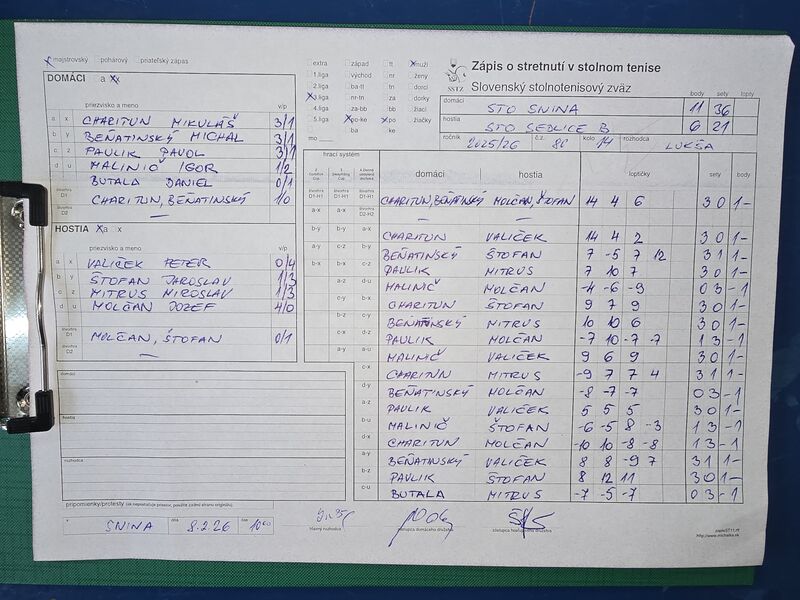 majstrovský pohárový priateľský zápas
DOMÁCI a x
priezvisko a meno v/p
a x CHARITUN MIKULÁŠ 3/1
b y BEŇATINSKÝ MICHAL 3/1
c z PAULIK PAVOL 3/1
d u MALINIČ IGOR 1/2
BUTALA DANIEL 0/1
štvorhra D1 CHARITUN, BEŇATINSKÝ 1/0
štvorhra D2 —
HOSTIA a x
priezvisko a meno v/p
a x VALIČEK PETER 0/4
b y ŠTOFAN JAROSLAV 1/3
c z MITRUS MIROSLAV 1/3
d u MOLČAN JOZEF 4/0
štvorhra D1 MOLČAN, ŠTOFAN 0/1
štvorhra D2 —
domáci
hostia
rozhodca
pripomienky/protesty
SNINA dňa 8.2.26 čas 1000
extra západ tt muži
1.liga východ nr ženy
2.liga ba-tt tn dorci
3.liga nr-tn za dorky
4.liga za-bb bb žiaci
5.liga po-ke po žiačky
mo ba ke
Zápis o stretnutí v stolnom tenise
SSTZ Slovenský stolnotenisový zväz
body sety lopty
domáci STO SNINA 11 36
hostia STO SEDLICE B 6 21
ročník 2025/26 č.z. 80 kolo 14 rozhodca LUKŠA
hrací systém
domáci hostia loptičky sety body
CHARITUN, BEŇATINSKÝ MOLČAN, ŠTOFAN 14 4 6 3 0 1 –
— —
CHARITUN VALIČEK 14 4 2 3 0 1 –
BEŇATINSKÝ ŠTOFAN 7 -5 7 12 3 1 1 –
PAULIK MITRUS 7 10 7 3 0 1 –
MALINIČ MOLČAN -4 -6 -9 0 3 – 1
CHARITUN ŠTOFAN 9 7 9 3 0 1 –
BEŇATINSKÝ MITRUS 10 10 6 3 0 1 –
PAULIK MOLČAN -7 10 -7 -7 1 3 – 1
MALINIČ VALIČEK 9 6 9 3 0 1 –
CHARITUN MITRUS -9 7 7 4 3 1 1 –
BEŇATINSKÝ MOLČAN -8 -7 -7 0 3 – 1
PAULIK VALIČEK 5 5 5 3 0 1 –
MALINIČ ŠTOFAN -6 -5 8 -3 1 3 – 1
CHARITUN MOLČAN -10 10 -8 -8 1 3 – 1
BEŇATINSKÝ VALIČEK 8 8 -9 7 3 1 1 –
PAULIK ŠTOFAN 8 12 11 3 0 1 –
BUTALA MITRUS -7 -5 -7 0 3 – 1
hlavný rozhodca zástupca domáceho družstva zástupca hosťujúceho družstva
http://www.michalka.sk